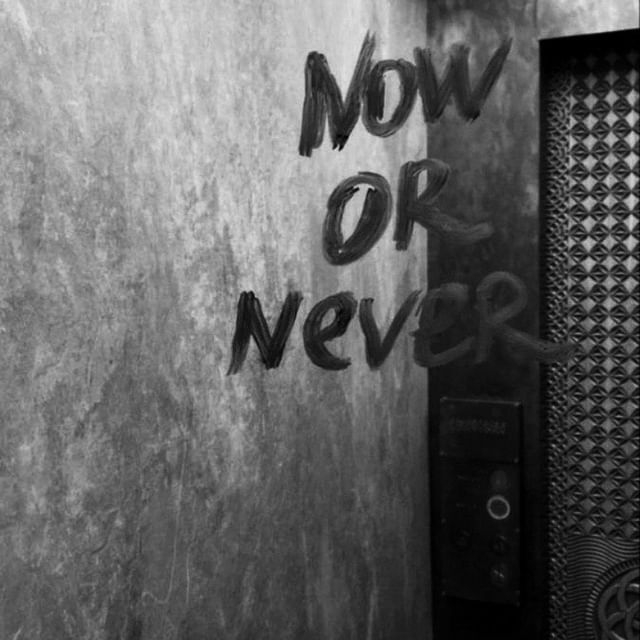 Now
OR
NeveR